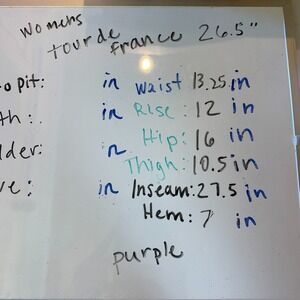 womens
tour de france 26.5"
o pit: in waist 13.25 in
th: in Rise: 12 in
lder: in Hip: 16 in
Thigh: 10.5 in
ve: in Inseam: 27.5 in
Hem: 7 in
purple